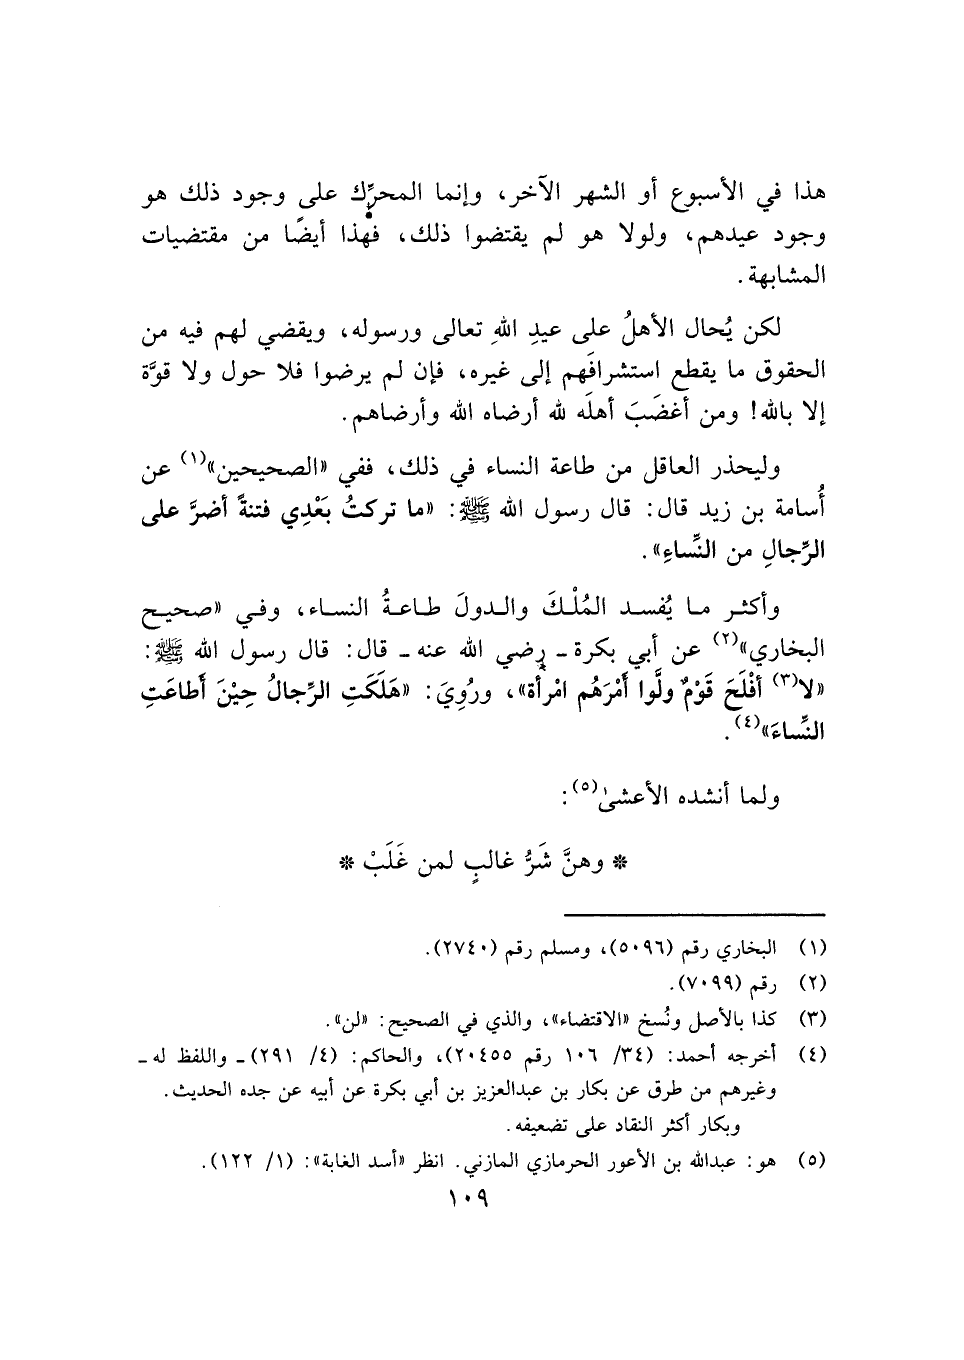 هذا في الأسبوع أو الشهر الآخر، وإنما المحرِّك على وجود ذلك هو
وجود عيدهم، ولولا هو لم يقتضوا ذلك، فهذا أيضًا من مقتضيات
المشابهة.
لكن يُحال الأهلُ على عيدِ اللهِ تعالى ورسوله، ويقضي لهم فيه من
الحقوق ما يقطع استشرافَهم إلى غيره، فإن لم يرضوا فلا حول ولا قوَّة
إلا بالله! ومن أغضَبَ أهلَه لله أرضاه الله وأرضاهم.
وليحذر العاقل من طاعة النساء في ذلك، ففي «الصحيحين»(١) عن
أُسامة بن زيد قال: قال رسول الله ﷺ: «ما تركتُ بَعْدِي فتنةً أضرَّ على
الرِّجالِ من النِّساءِ».
وأكثر ما يُفسد المُلْكَ والدولَ طاعةُ النساء، وفي «صحيح
البخاري»(٢) عن أبي بكرة ـ رضي الله عنه ـ قال: قال رسول الله ﷺ:
«لا(٣) أفْلَحَ قَوْمٌ ولَّوا أَمْرَهُم امْرأَة»، ورُوِيَ: «هَلَكَتِ الرِّجالُ حِيْنَ أَطاعَتِ
النِّساءَ»(٤).
ولما أنشده الأعشىٰ(٥):
* وهنَّ شَرُّ غالبٍ لمن غَلَبْ *
(١) البخاري رقم (٥٠٩٦)، ومسلم رقم (٢٧٤٠).
(٢) رقم (٧٠٩٩).
(٣) كذا بالأصل ونُسخ «الاقتضاء»، والذي في الصحيح: «لن».
(٤) أخرجه أحمد: (٣٤/ ١٠٦ رقم ٢٠٤٥٥)، والحاكم: (٤/ ٢٩١) ـ واللفظ له ـ
وغيرهم من طرق عن بكار بن عبدالعزيز بن أبي بكرة عن أبيه عن جده الحديث.
وبكار أكثر النقاد على تضعيفه.
(٥) هو: عبدالله بن الأعور الحرمازي المازني. انظر «أسد الغابة»: (١/ ١٢٢).
١٠٩